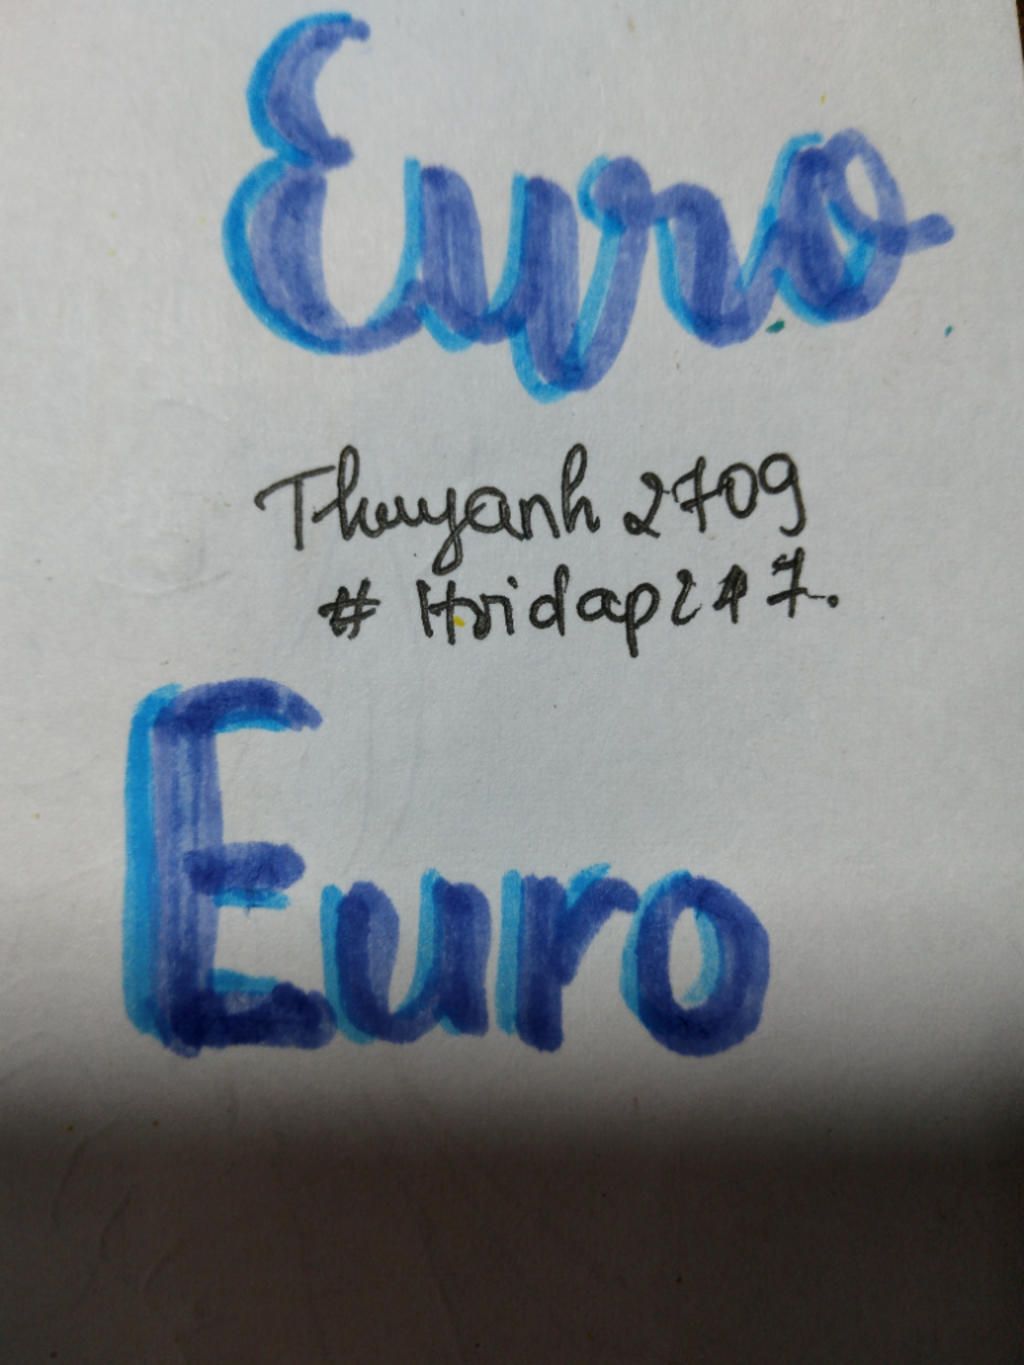 Euro
Thuyanh2709
# Hoidap247.
Euro